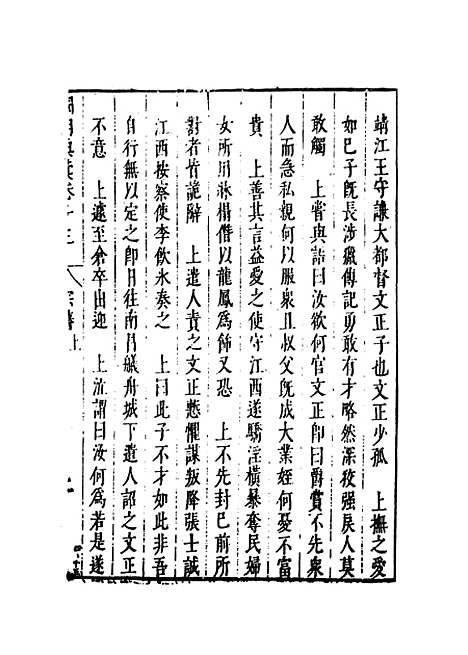 靖江王守謙大都督文正子也文正少孤　上撫之愛
如已子旣長涉獵傳記勇敢有才略然深狡强戾人莫
敢觸　上嘗與語曰汝欲何官文正卽曰爵賞不先衆
人而急私親何以服衆且叔父旣成大業姪何憂不富
貴　上善其言益愛之使守江西遂驕淫橫暴奪民婦
女所用牀榻僭以龍鳳爲飾又恐　上不先封已前所
對者皆詭辭　上遣人責之文正慙懼謀叛降張士誠
江西按察使李飲氷奏之　上曰此子不才如此非吾
自行無以定之卽日往南昌艤舟城下遣人詔之文正
不意　上遽至倉卒出迎　上泣謂曰汝何爲若是遂
宗藩上